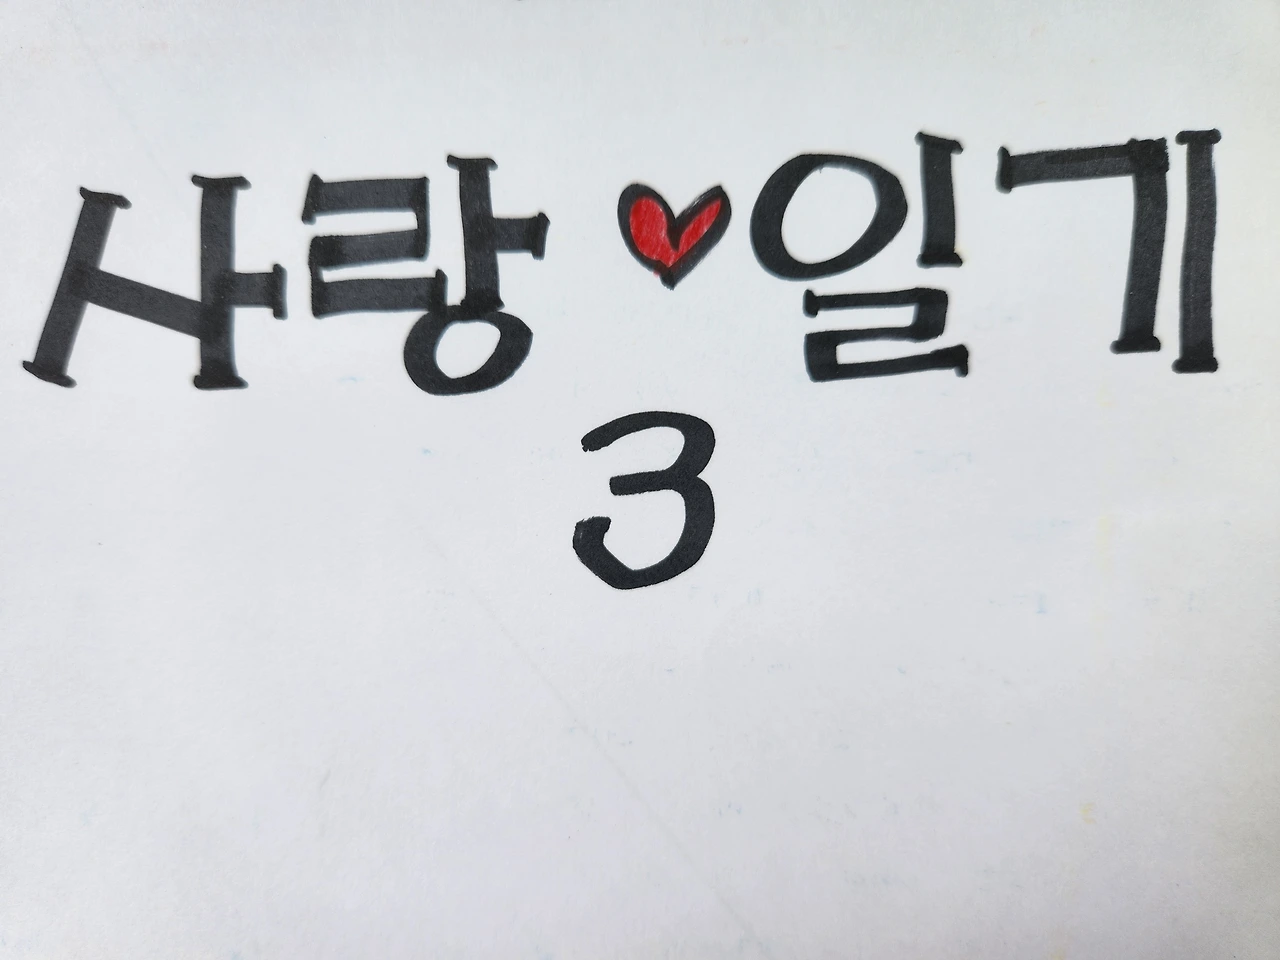 사랑♥일기
3